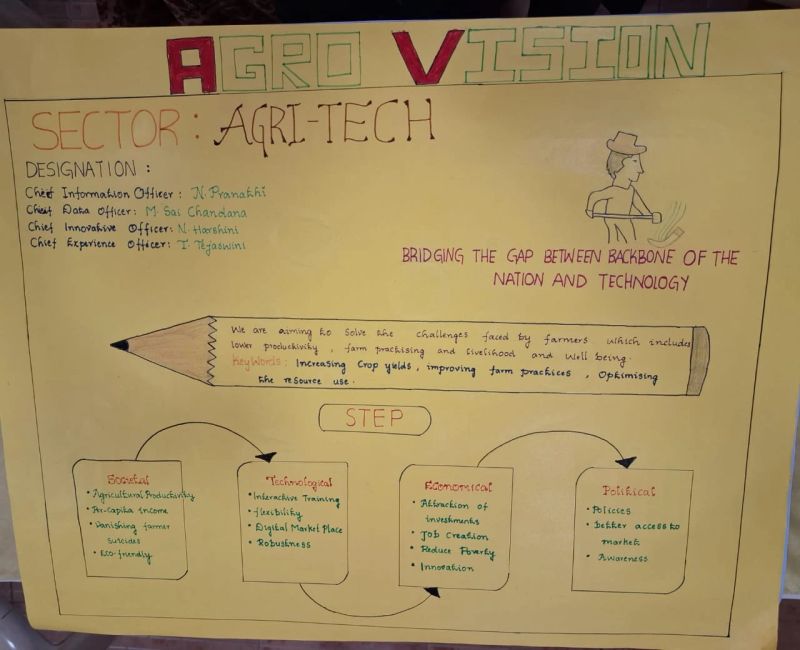 AGRO VISION
SECTOR: AGRI-TECH
DESIGNATION:
Chief Information Officer: N. Pranathi
Chief Data Officer: M. Sai Chandana
Chief Innovative Officer: N. Harshini
Chief Experience Officer: T. Tejaswini
BRIDGING THE GAP BETWEEN BACKBONE OF THE
NATION AND TECHNOLOGY
We are aiming to solve the challenges faced by farmers which includes
lower productivity, farm practising and livelihood and well being.
Keywords: Increasing Crop yields, improving farm practices, Optimising
the resource use.
STEP
Societal
• Agricultural Productivity
• Per-capita income
• Vanishing farmer
suicides
• Eco-friendly
Technological
• Interactive Training
• flexibility
• Digital Market Place
• Robustness
Economical
• Attraction of
investments
• Job Creation
• Reduce Poverty
• Innovation
Political
• Policies
• better access to
market
• Awareness